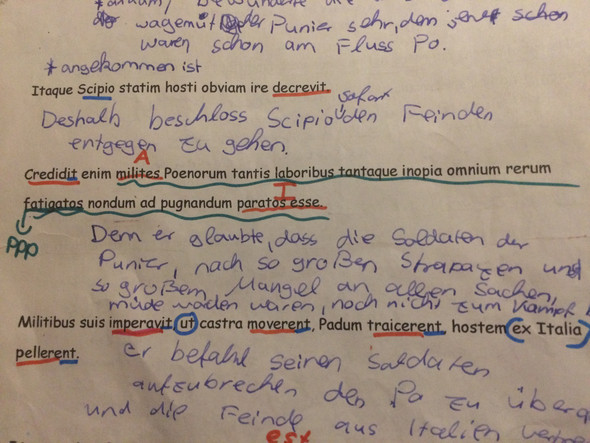 *
wagemut der Punier sehr, denn
schon
waren schon am Fluss Po.
* angekommen ist
Itaque Scipio statim hosti obviam ire decrevit.
sofort
Deshalb beschloss Scipio den Feinden
entgegen zu gehen.
A
Credidit enim milites Poenorum tantis laboribus tantaque inopia omnium rerum
I
fatigatos nondum ad pugnandum paratos esse.
PPP
Denn er glaubte, dass die Soldaten der
Punier, nach so großen Strapazen und
so großen Mangel an allen Sachen,
müde worden waren, noch nicht zum Kampf
Militibus suis imperavit ut castra moverent, Padum traicerent, hostem ex Italia
pellerent.
Er befahl seinen Soldaten
aufzubrechen den Po zu
und die Feinde aus Italien
est